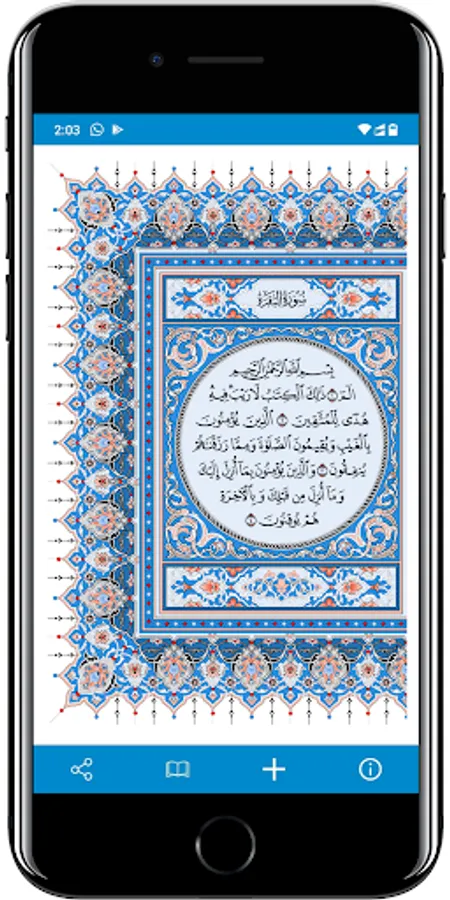 2:03
سُورَةُ البَقَرَةِ
بِسْمِ ٱللَّهِ ٱلرَّحْمَٰنِ ٱلرَّحِيمِ
الٓمٓ ۝١ ذَٰلِكَ ٱلْكِتَٰبُ لَا رَيْبَ فِيهِ
هُدًى لِّلْمُتَّقِينَ ۝٢ ٱلَّذِينَ يُؤْمِنُونَ
بِٱلْغَيْبِ وَيُقِيمُونَ ٱلصَّلَوٰةَ وَمِمَّا رَزَقْنَٰهُمْ
يُنفِقُونَ ۝٣ وَٱلَّذِينَ يُؤْمِنُونَ بِمَآ أُنزِلَ إِلَيْكَ
وَمَآ أُنزِلَ مِن قَبْلِكَ وَبِٱلْءَاخِرَةِ
هُمْ يُوقِنُونَ ۝٤